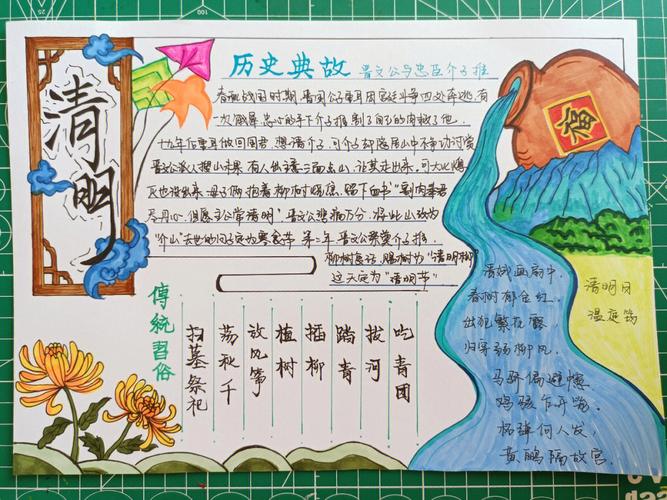 清明
历史典故 晋文公与忠臣介子推
春秋战国时期,晋国公子重耳因宫廷斗争四处奔逃,有
一次饿昏,忠心的手下介子推割了自己的肉救了他。
十九年后重耳做回国君,想请介子,可介子却隐居山中不争功讨赏
晋文派人搜山未果,有人出诸三面点山,让其走出来,可大火熄
灭也没出来,母子俩抱着柳树烧焦,留下血书"割肉奉君
尽丹心,但愿主公常清明"。晋文公悲痛万分,将此山改为
"介山"去世的日子定为寒食节,第二年晋文公祭奠介子推,
柳树复活,赐柳树为"清明柳"
这天定为"清明节"
福
傳統習俗
扫墓祭祀
荡秋千
放风筝
植树
插柳
踏青
拔河
吃青团
清明日
温庭筠
清娥画扇中,
春树郁金红。
出犯繁花露,
归穿弱柳风。
马骄偏避幰,
鸡骇乍开笼。
柘弹何人发,
黄鹂隔故宫。